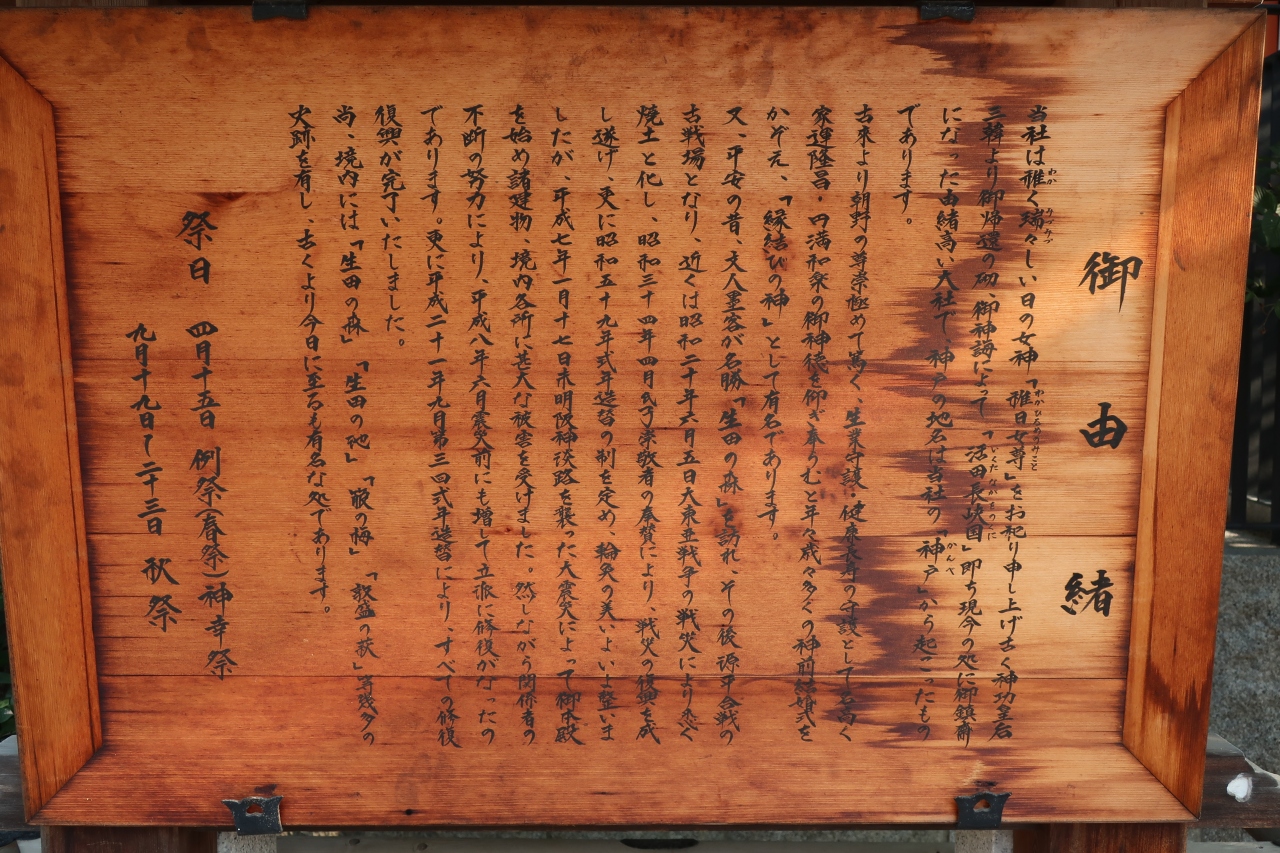 御由緒
当社は稚く瑞々しい日の女神「稚日女尊」をお祀り申し上げ古く神功皇后
三韓より御帰還の砌、御神誨によって「活田長峡国」即ち現今の処に御鎮斎
になった由緒高い大社で、神戸の地名は当社の「神戸」から起こったもの
であります。
古来より朝野の尊崇極めて篤く、生業守護・健康長寿の守護として名高く
家運隆昌・円満和楽の御神徳を仰ぎ奉らむと年々歳々多くの神前結婚式を
かぞえ、「縁結びの神」として有名であります。
又、平安の昔、文人墨客が名勝「生田の森」を訪れ、その後源平合戦の
古戦場となり、近くは昭和二十年六月五日大東亜戦争の戦災により悉く
焼土と化し、昭和三十四年四月氏子崇敬者の奉賛により、戦災の復興を成
し遂げ、更に昭和五十九年式年造替の制を定め、輪奐の美いよいよ整いま
したが、平成七年一月十七日未明阪神淡路を襲った大震災によって御本殿
を始め諸建物、境内各所に甚大な被害を受けました。然しながら関係者の
不断の努力により、平成八年六月震災前にも増して立派に修復がなったの
であります。更に平成二十一年九月第三四式年造替により、すべての修復
復興が完了いたしました。
尚、境内には「生田の森」「生田の池」「箙の梅」「敦盛の萩」等幾多の
史跡を有し、古くより今日に至るも有名な処であります。
祭日 四月十五日 例祭(春祭)神幸祭
九月十九日〜二十三日 秋祭
わか
みずみず
わかひるめのみこと
いくたながさのくに
かんべ